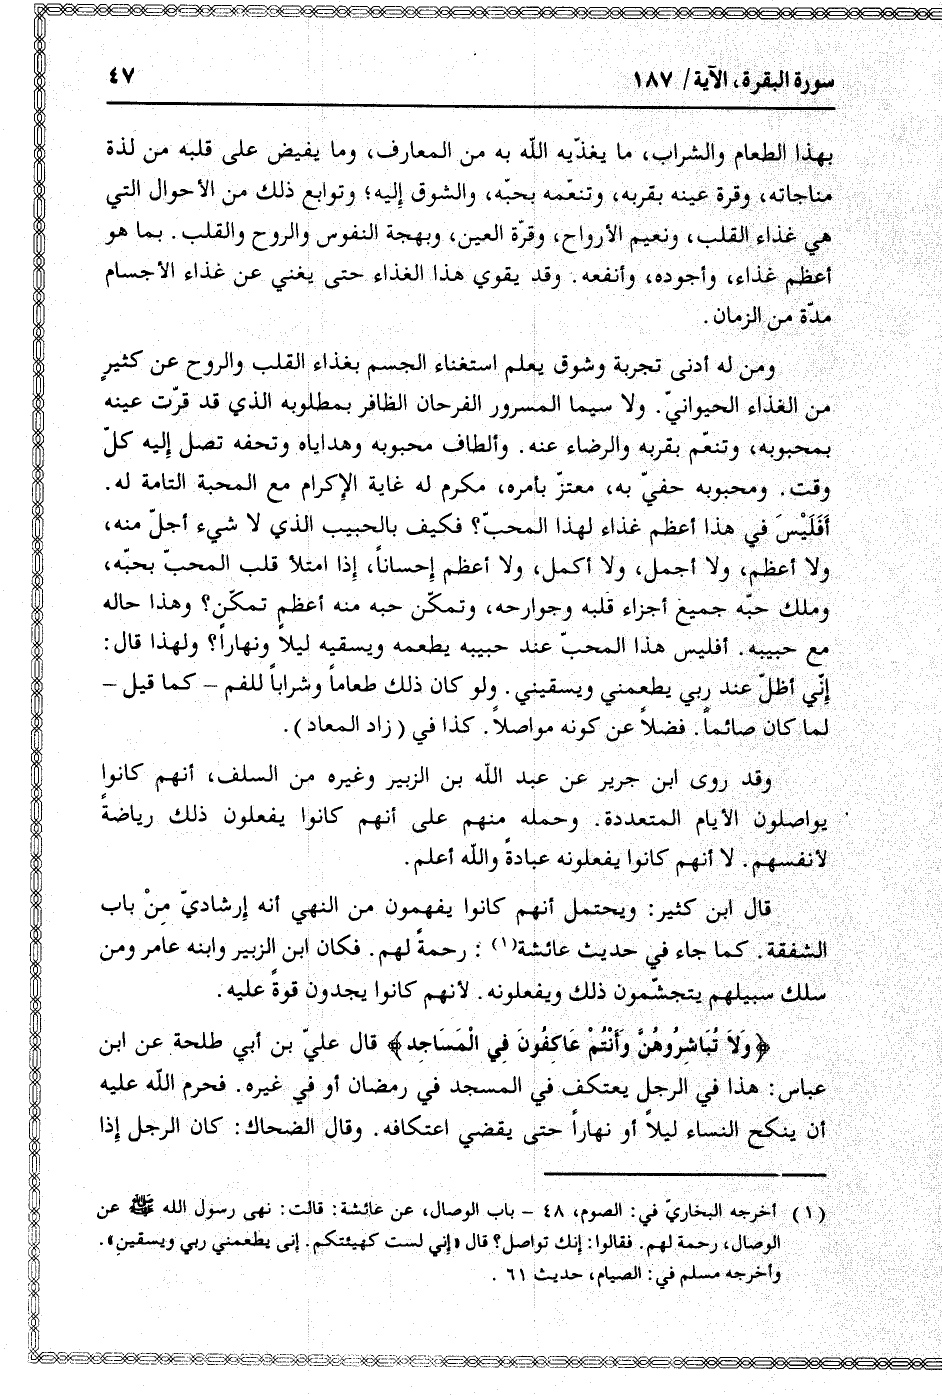 سورة البقرة، الآية/ ١٨٧
٤٧
بهذا الطعام والشراب، ما يغذّيه اللّه به من المعارف، وما يفيض على قلبه من لذة
مناجاته، وقرة عينه بقربه، وتنعّمه بحبّه، والشوق إليه؛ وتوابع ذلك من الأحوال التي
هي غذاء القلب، ونعيم الأرواح، وقرّة العين، وبهجة النفوس والروح والقلب. بما هو
أعظم غذاء، وأجوده، وأنفعه. وقد يقوي هذا الغذاء حتى يغني عن غذاء الأجسام
مدّة من الزمان.
ومن له أدنى تجربة وشوق يعلم استغناء الجسم بغذاء القلب والروح عن كثيرٍ
من الغذاء الحيوانيّ. ولا سيما المسرور الفرحان الظافر بمطلوبه الذي قد قرّت عينه
بمحبوبه، وتنعّم بقربه والرضاء عنه. وألطاف محبوبه وهداياه وتحفه تصل إليه كلّ
وقت. ومحبوبه حفيّ به، معتزّ بأمره، مكرم له غاية الإكرام مع المحبة التامة له.
أَفَلَيْسَ في هذا أعظم غذاء لهذا المحبّ؟ فكيف بالحبيب الذي لا شيء أجلّ منه،
ولا أعظم، ولا أجمل، ولا أكمل، ولا أعظم إحساناً، إذا امتلأ قلب المحبّ بحبّه،
وملك حبّه جميع أجزاء قلبه وجوارحه، وتمكّن حبه منه أعظم تمكّن؟ وهذا حاله
مع حبيبه. أفليس هذا المحبّ عند حبيبه يطعمه ويسقيه ليلاً ونهاراً؟ ولهذا قال:
إنّي أظلّ عند ربي يطعمني ويسقيني. ولو كان ذلك طعاماً وشراباً للفم – كما قيل –
لما كان صائماً. فضلاً عن كونه مواصلاً. كذا في (زاد المعاد).
وقد روى ابن جرير عن عبد اللّه بن الزبير وغيره من السلف، أنهم كانوا
يواصلون الأيام المتعددة. وحمله منهم على أنهم كانوا يفعلون ذلك رياضةً
لأنفسهم. لا أنهم كانوا يفعلونه عبادةً واللّه أعلم.
قال ابن كثير: ويحتمل أنهم كانوا يفهمون من النهي أنه إرشاديّ مِنْ باب
الشفقة. كما جاء في حديث عائشة(١) : رحمةً لهم. فكان ابن الزبير وابنه عامر ومن
سلك سبيلهم يتجشّمون ذلك ويفعلونه. لأنهم كانوا يجدون قوةً عليه.
﴿وَلَا تُبَاشِرُوهُنَّ وَأَنْتُمْ عَاكِفُونَ فِي الْمَسَاجِد﴾ قال عليّ بن أبي طلحة عن ابن
عباس: هذا في الرجل يعتكف في المسجد في رمضان أو في غيره. فحرم اللّه عليه
أن ينكح النساء ليلاً أو نهاراً حتى يقضي اعتكافه. وقال الضحاك: كان الرجل إذا
(١) أخرجه البخاريّ في: الصوم، ٤٨ – باب الوصال، عن عائشة: قالت: نهى رسول الله ﷺ عن
الوصال، رحمة لهم. فقالوا: إنك تواصل؟ قال «إني لست كهيئتكم. إنى يطعمني ربي ويسقينِ».
وأخرجه مسلم في: الصيام، حديث ٦١ .